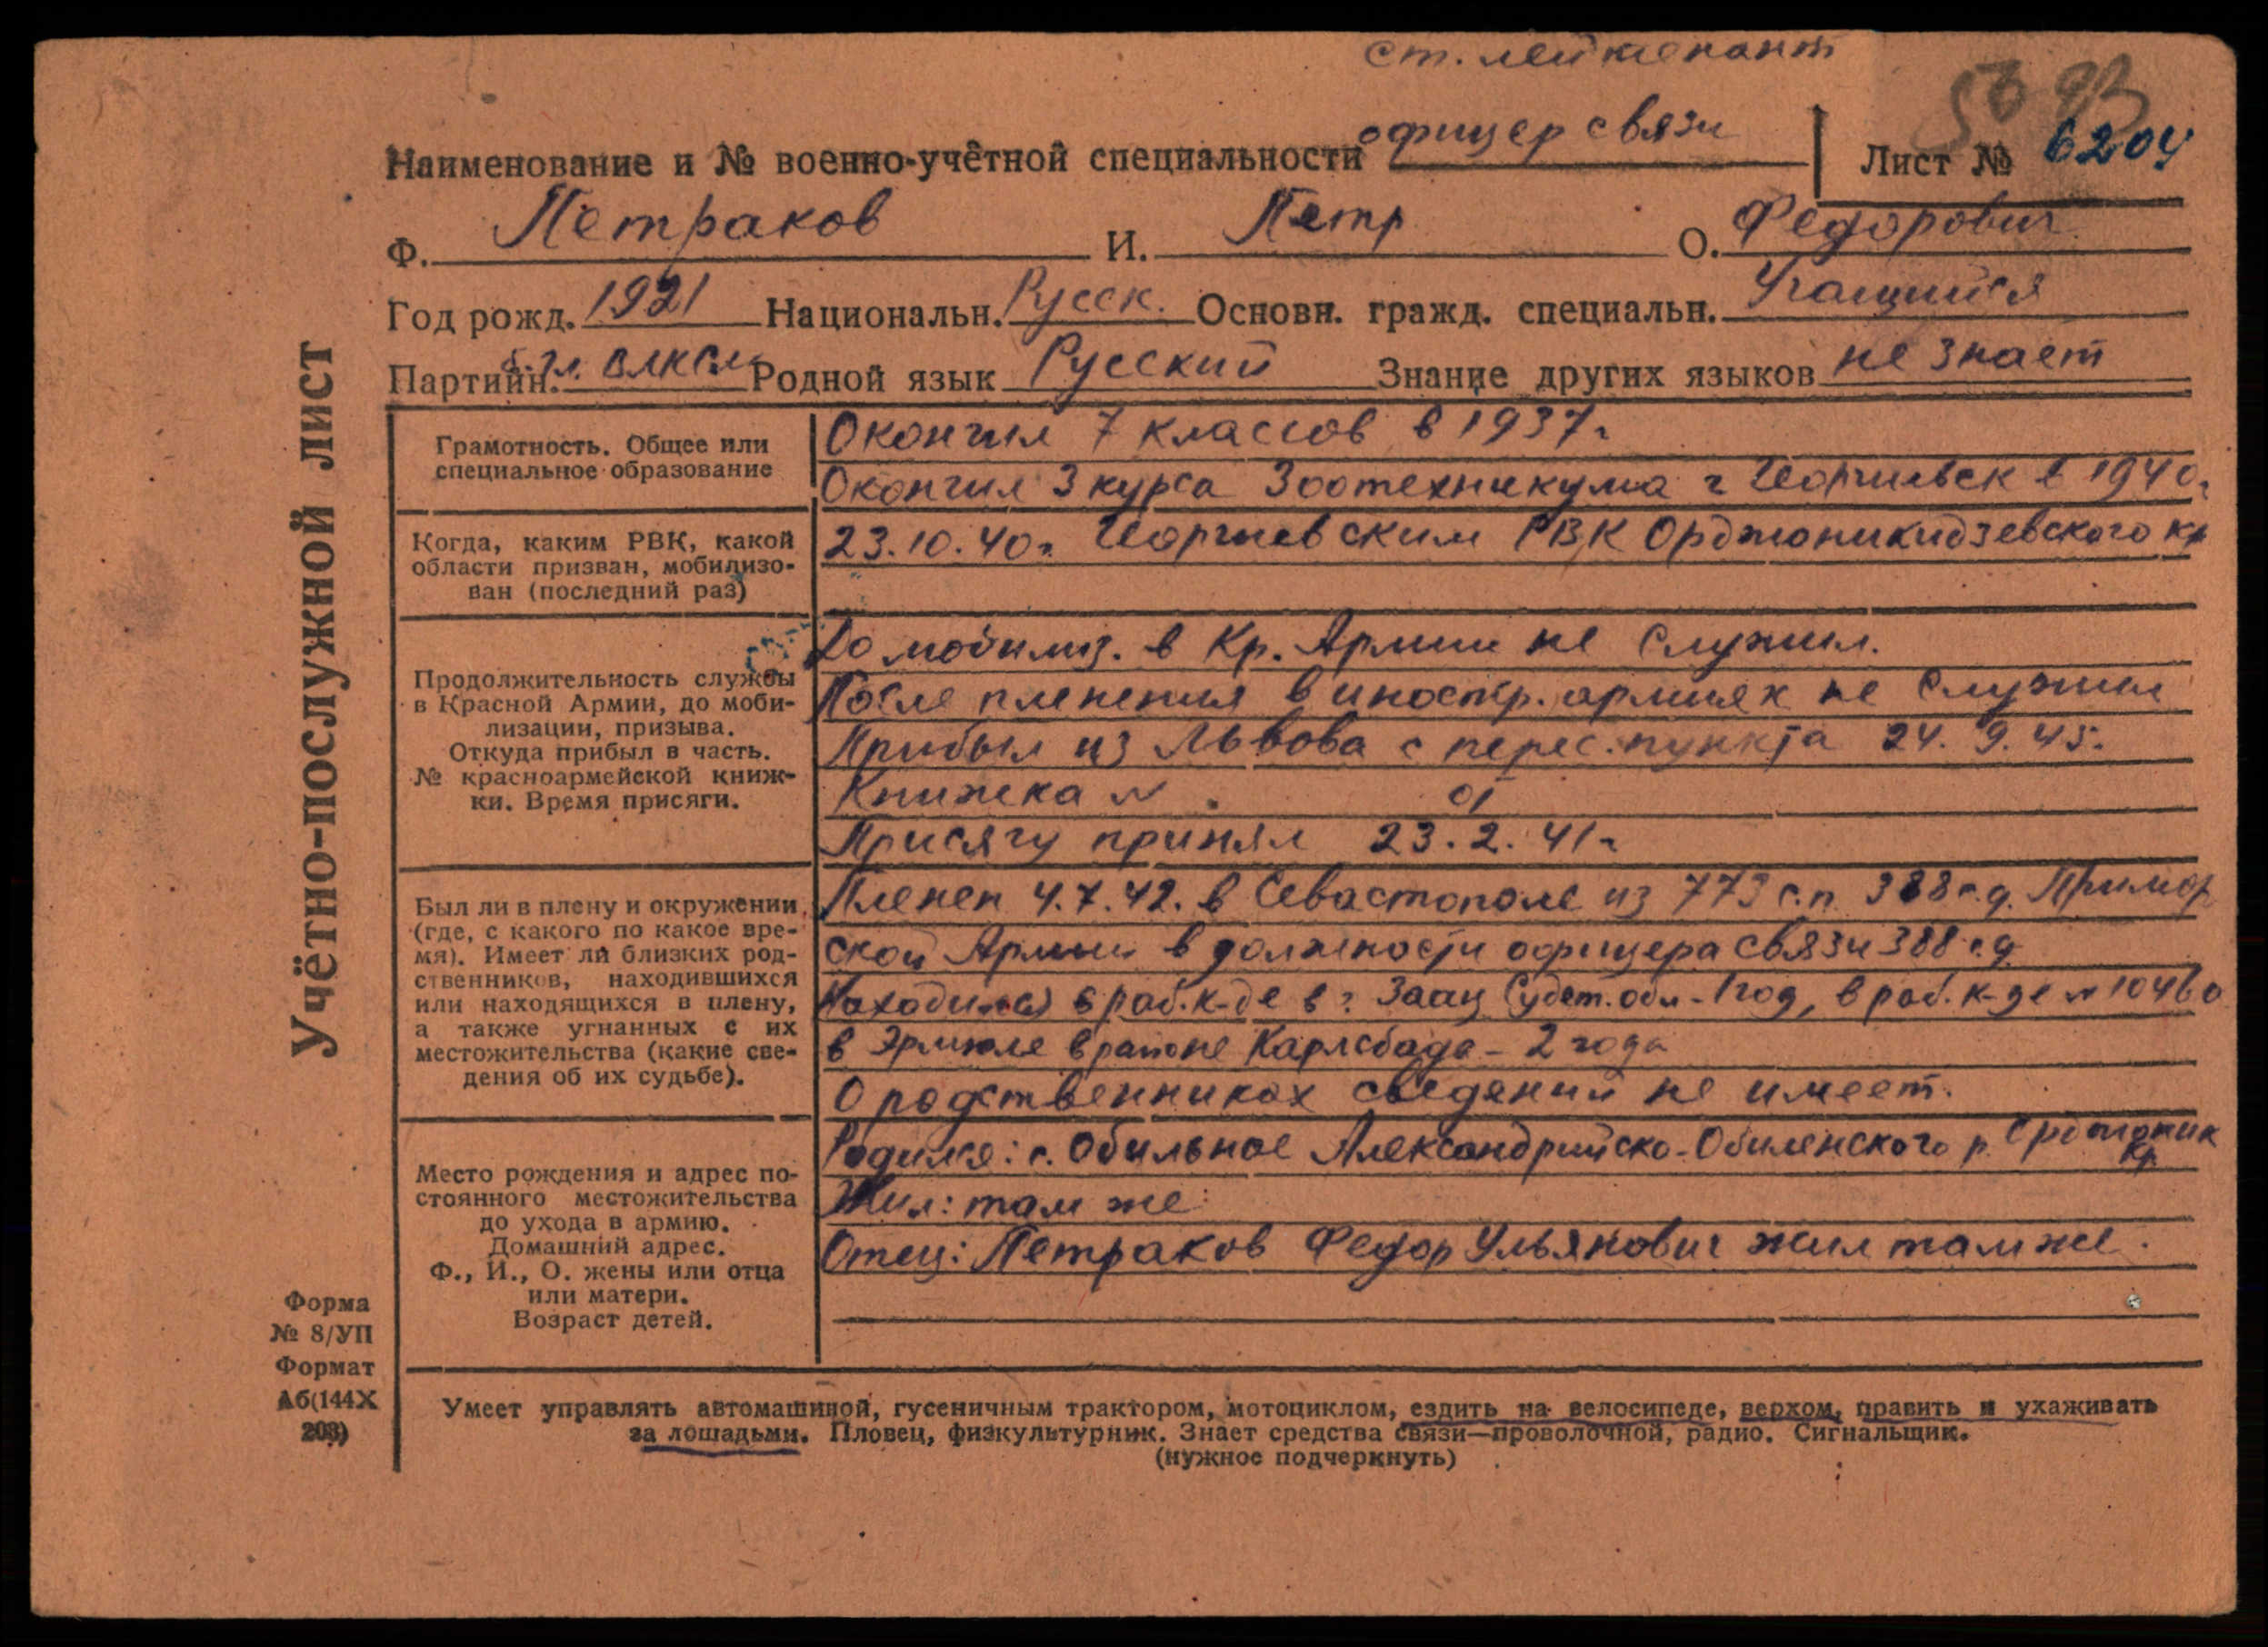 ст. лейтенант
5693
Наименование и № военно-учётной специальности офицер связи Лист № 6204
Ф. Петраков И. Петр О. Федорович
Год рожд. 1921 Национальн. Русск. Основн. гражд. специальн. Учащийся
Партийн. б. чл. ВЛКСМ Родной язык Русский Знание других языков не знает
Учётно-послужной лист
Грамотность. Общее или
специальное образование
Окончил 7 классов в 1937 г
Окончил 3 курса Зоотехникума г Георгиевск в 1940 г
Когда, каким РВК, какой
области призван, мобилизо-
ван (последний раз)
23.10.40 г. Георгиевским РВК Орджоникидзевского кр
Продолжительность службы
в Красной Армии, до моби-
лизации, призыва.
Откуда прибыл в часть.
№ красноармейской книж-
ки. Время присяги.
До мобилиз. в Кр. Армии не служил.
После пленения в иностр. армиях не служил
Прибыл из Львова с перес. пункта 24. 9. 45.
Книжка №
Присягу принял 23. 2. 41 г
Был ли в плену и окружении
(где, с какого по какое вре-
мя). Имеет ли близких род-
ственников, находившихся
или находящихся в плену,
а также угнанных с их
местожительства (какие све-
дения об их судьбе).
Пленен 4.7.42. в Севастополе из 773 с.п. 388 с.д. Примор
ской Армии в должности офицера связи 388 с.д
Находился в раб. к-де в г. Заац Судет. обл - 1 год, в раб. к-де № 10460
в Эрмзле в районе Карлсбада - 2 года
О родственниках сведений не имеет.
Место рождения и адрес по-
стоянного местожительства
до ухода в армию.
Домашний адрес.
Ф., И., О. жены или отца
или матери.
Возраст детей.
Родился: с. Обильное Александрийско-Обиленского р. Орджоник
кр
Жил: там же
Отец: Петраков Федор Ульянович жил там же.
Форма
№ 8/УП
Формат
А6(144Х
203)
Умеет управлять автомашиной, гусеничным трактором, мотоциклом, ездить на велосипеде, верхом, править и ухаживать
за лошадьми. Пловец, физкультурник. Знает средства связи—проволочной, радио. Сигнальщик.
(нужное подчеркнуть)